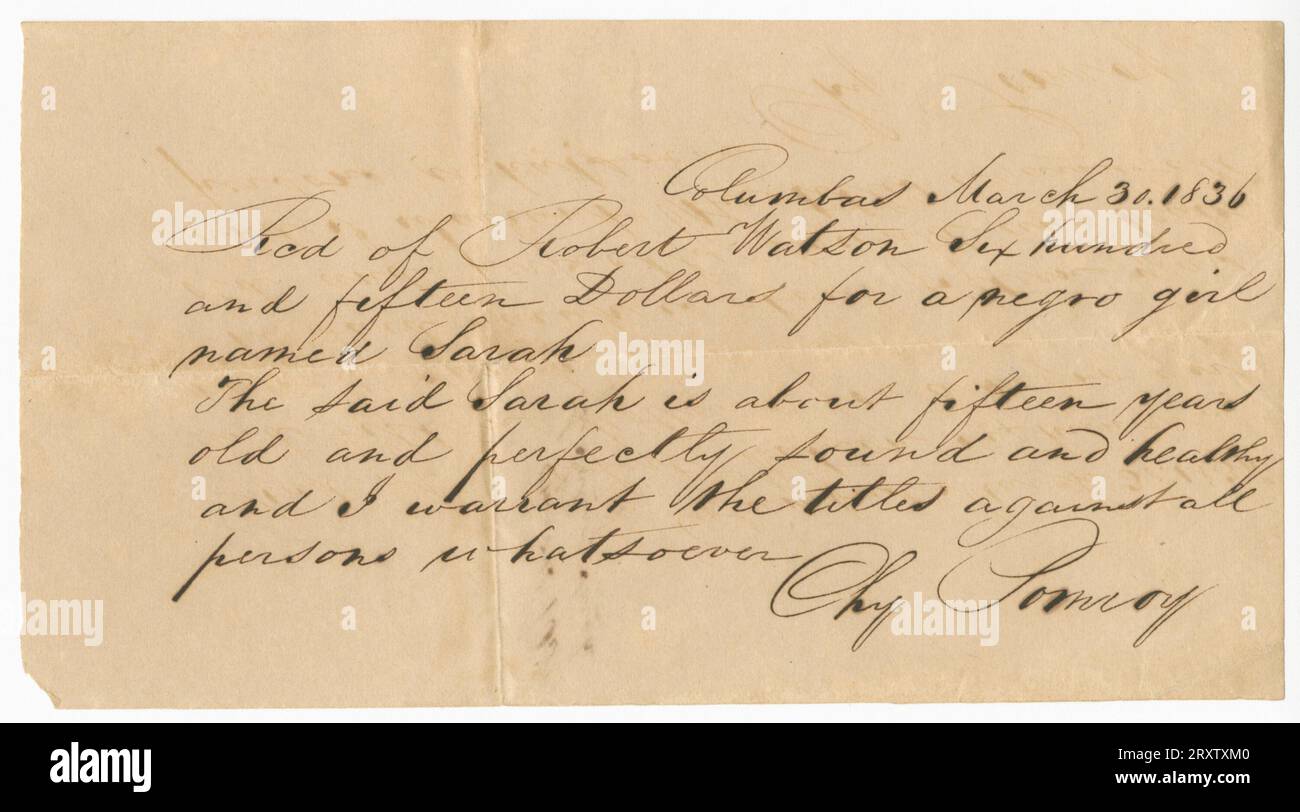 Columbus March 30. 1836
Recd of Robert Watson Six hundred
and fifteen Dollars for a negro girl
named Sarah
The said Sarah is about fifteen years
old and perfectly sound and healthy
and I warrant the titles against all
persons whatsoever
Chy Pomroy
alamy
Image ID: 2RXTXM0
www.alamy.com